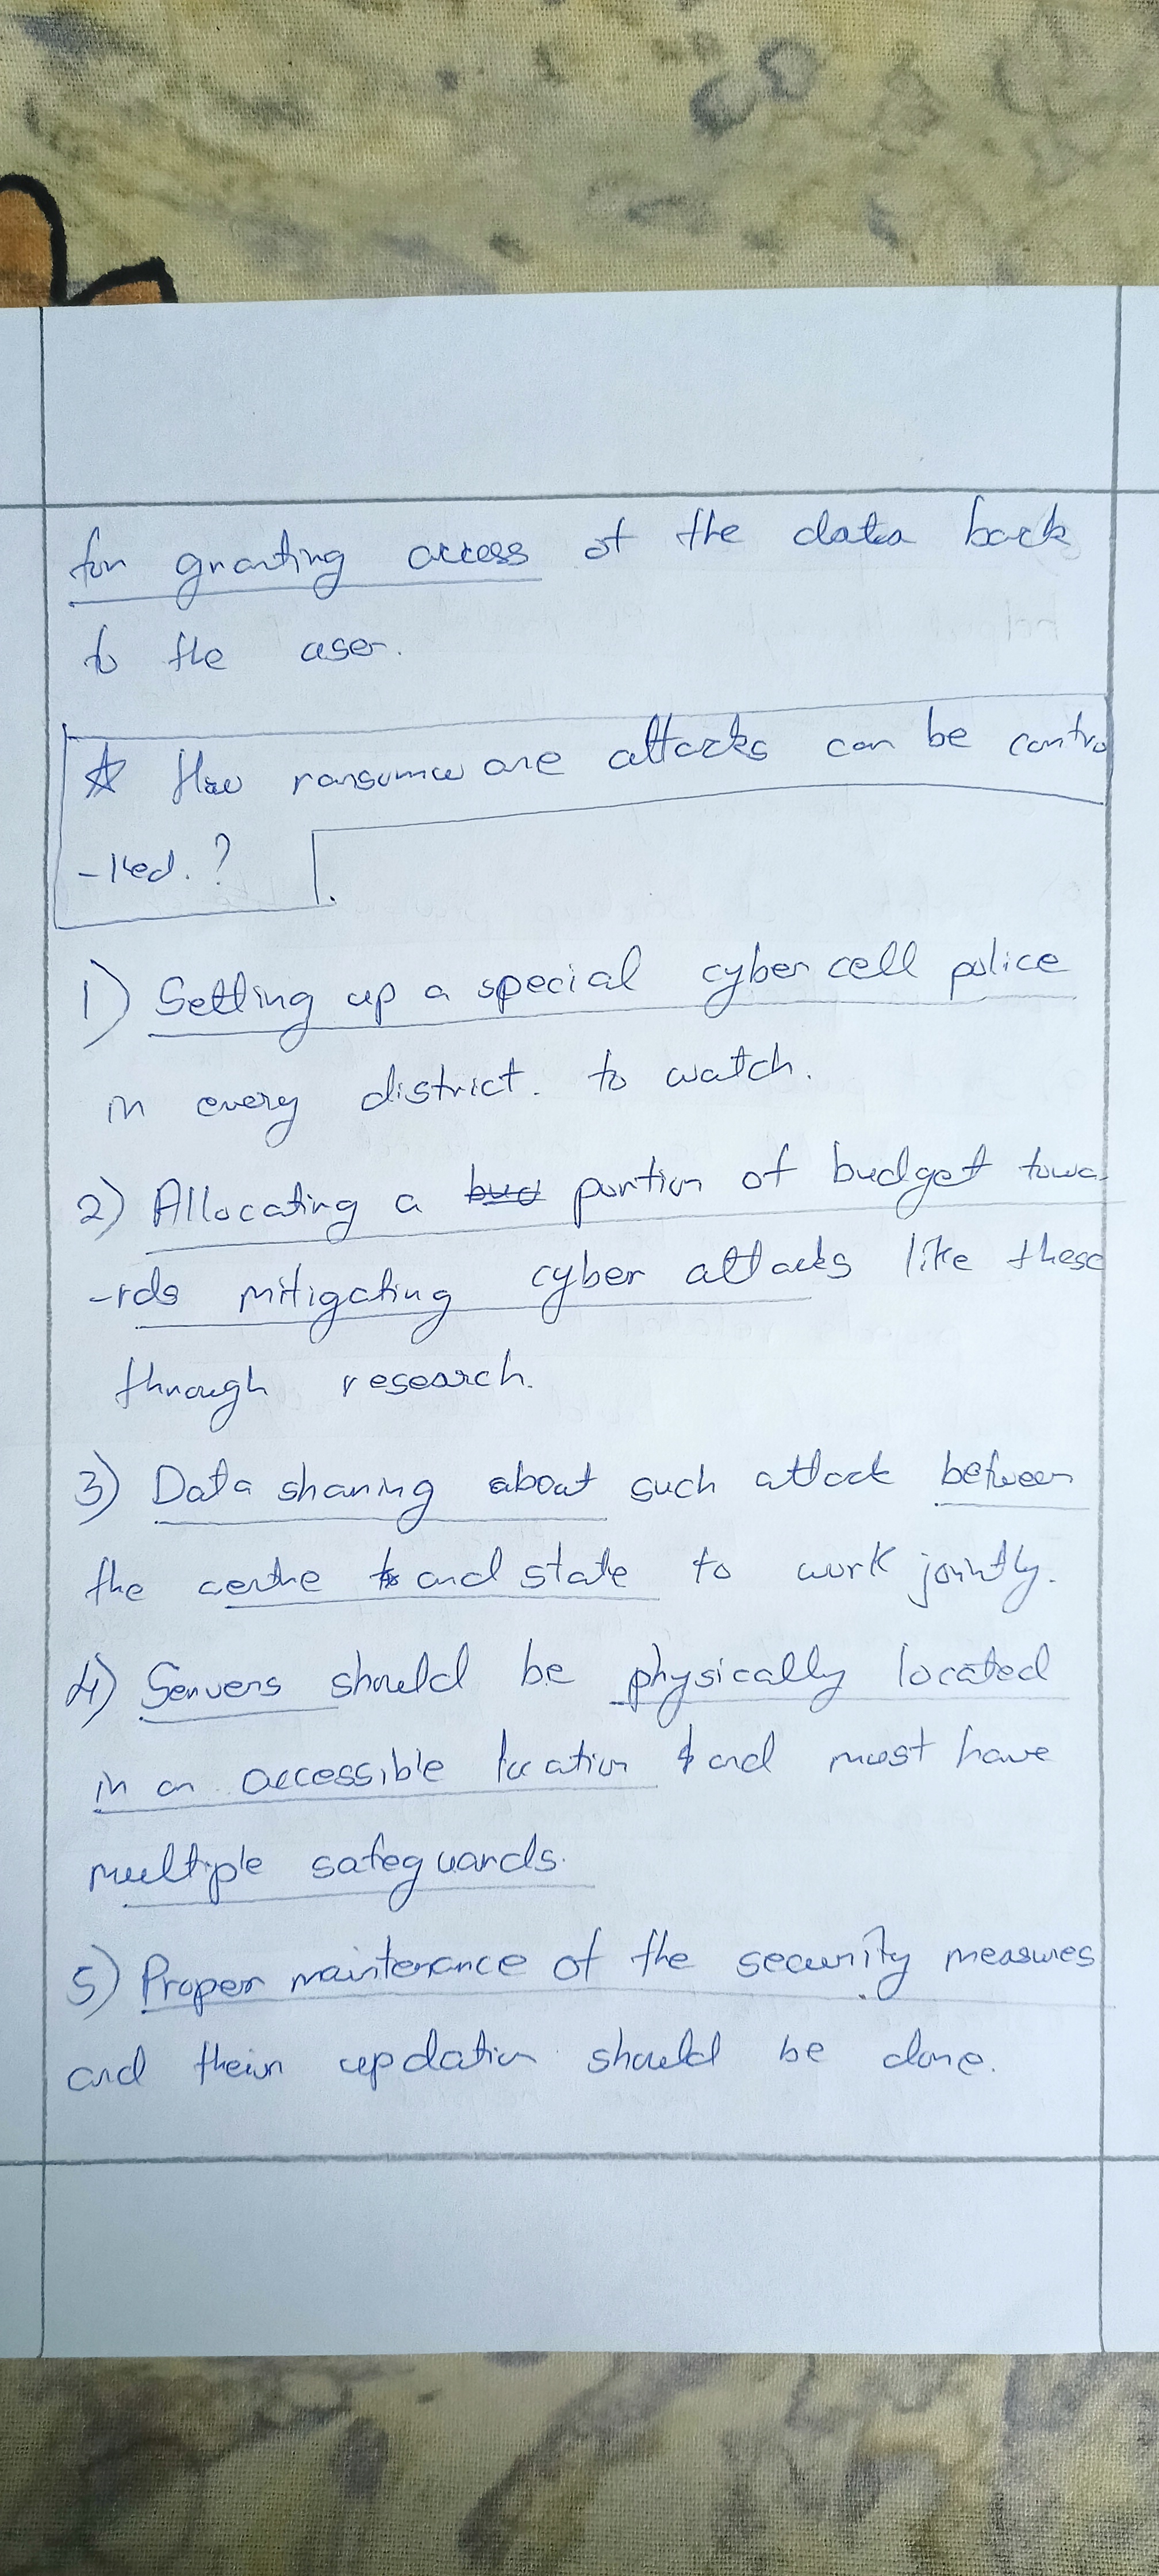 for granting access of the data back
to the user.
☆ How ransomware attacks can be contro
-lled. ?
1) Setting up a special cyber cell police
in every district. to watch.
2) Allocating a bud portion of budget towa
-rds mitigating cyber attacks like these
through research.
3) Data sharing about such attack between
the centre to and state to work jointly.
4) Servers should be physically located
in an accessible location & and must have
multiple safeguards.
5) Proper maintenance of the security measures
and their updation should be done.